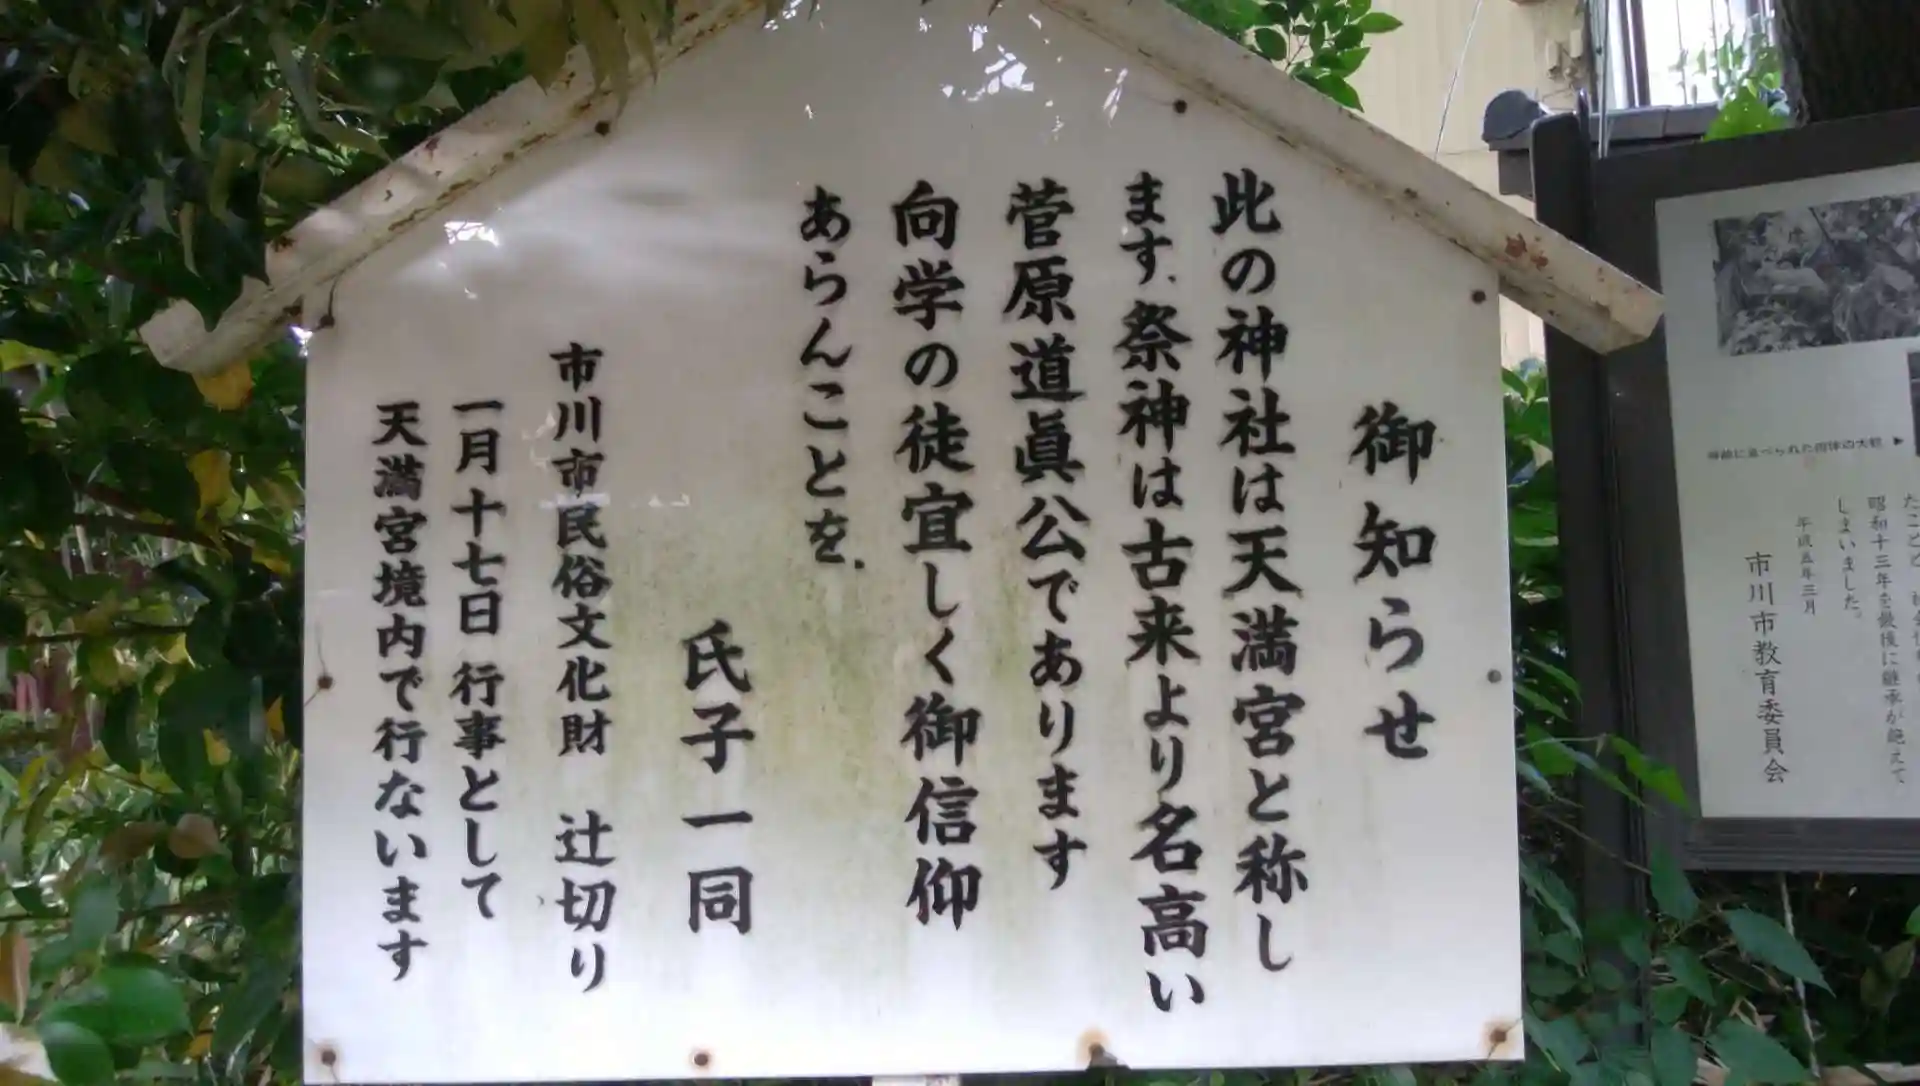 御知らせ
此の神社は天満宮と称し
ます、祭神は古来より名高い
菅原道眞公であります
向学の徒宜しく御信仰
あらんことを.
氏子一同
市川市民俗文化財 辻切り
一月十七日 行事として
天満宮境内で行ないます
昭和十三年を最後に継承が絶えて
しまいました。
平成五年三月
市川市教育委員会